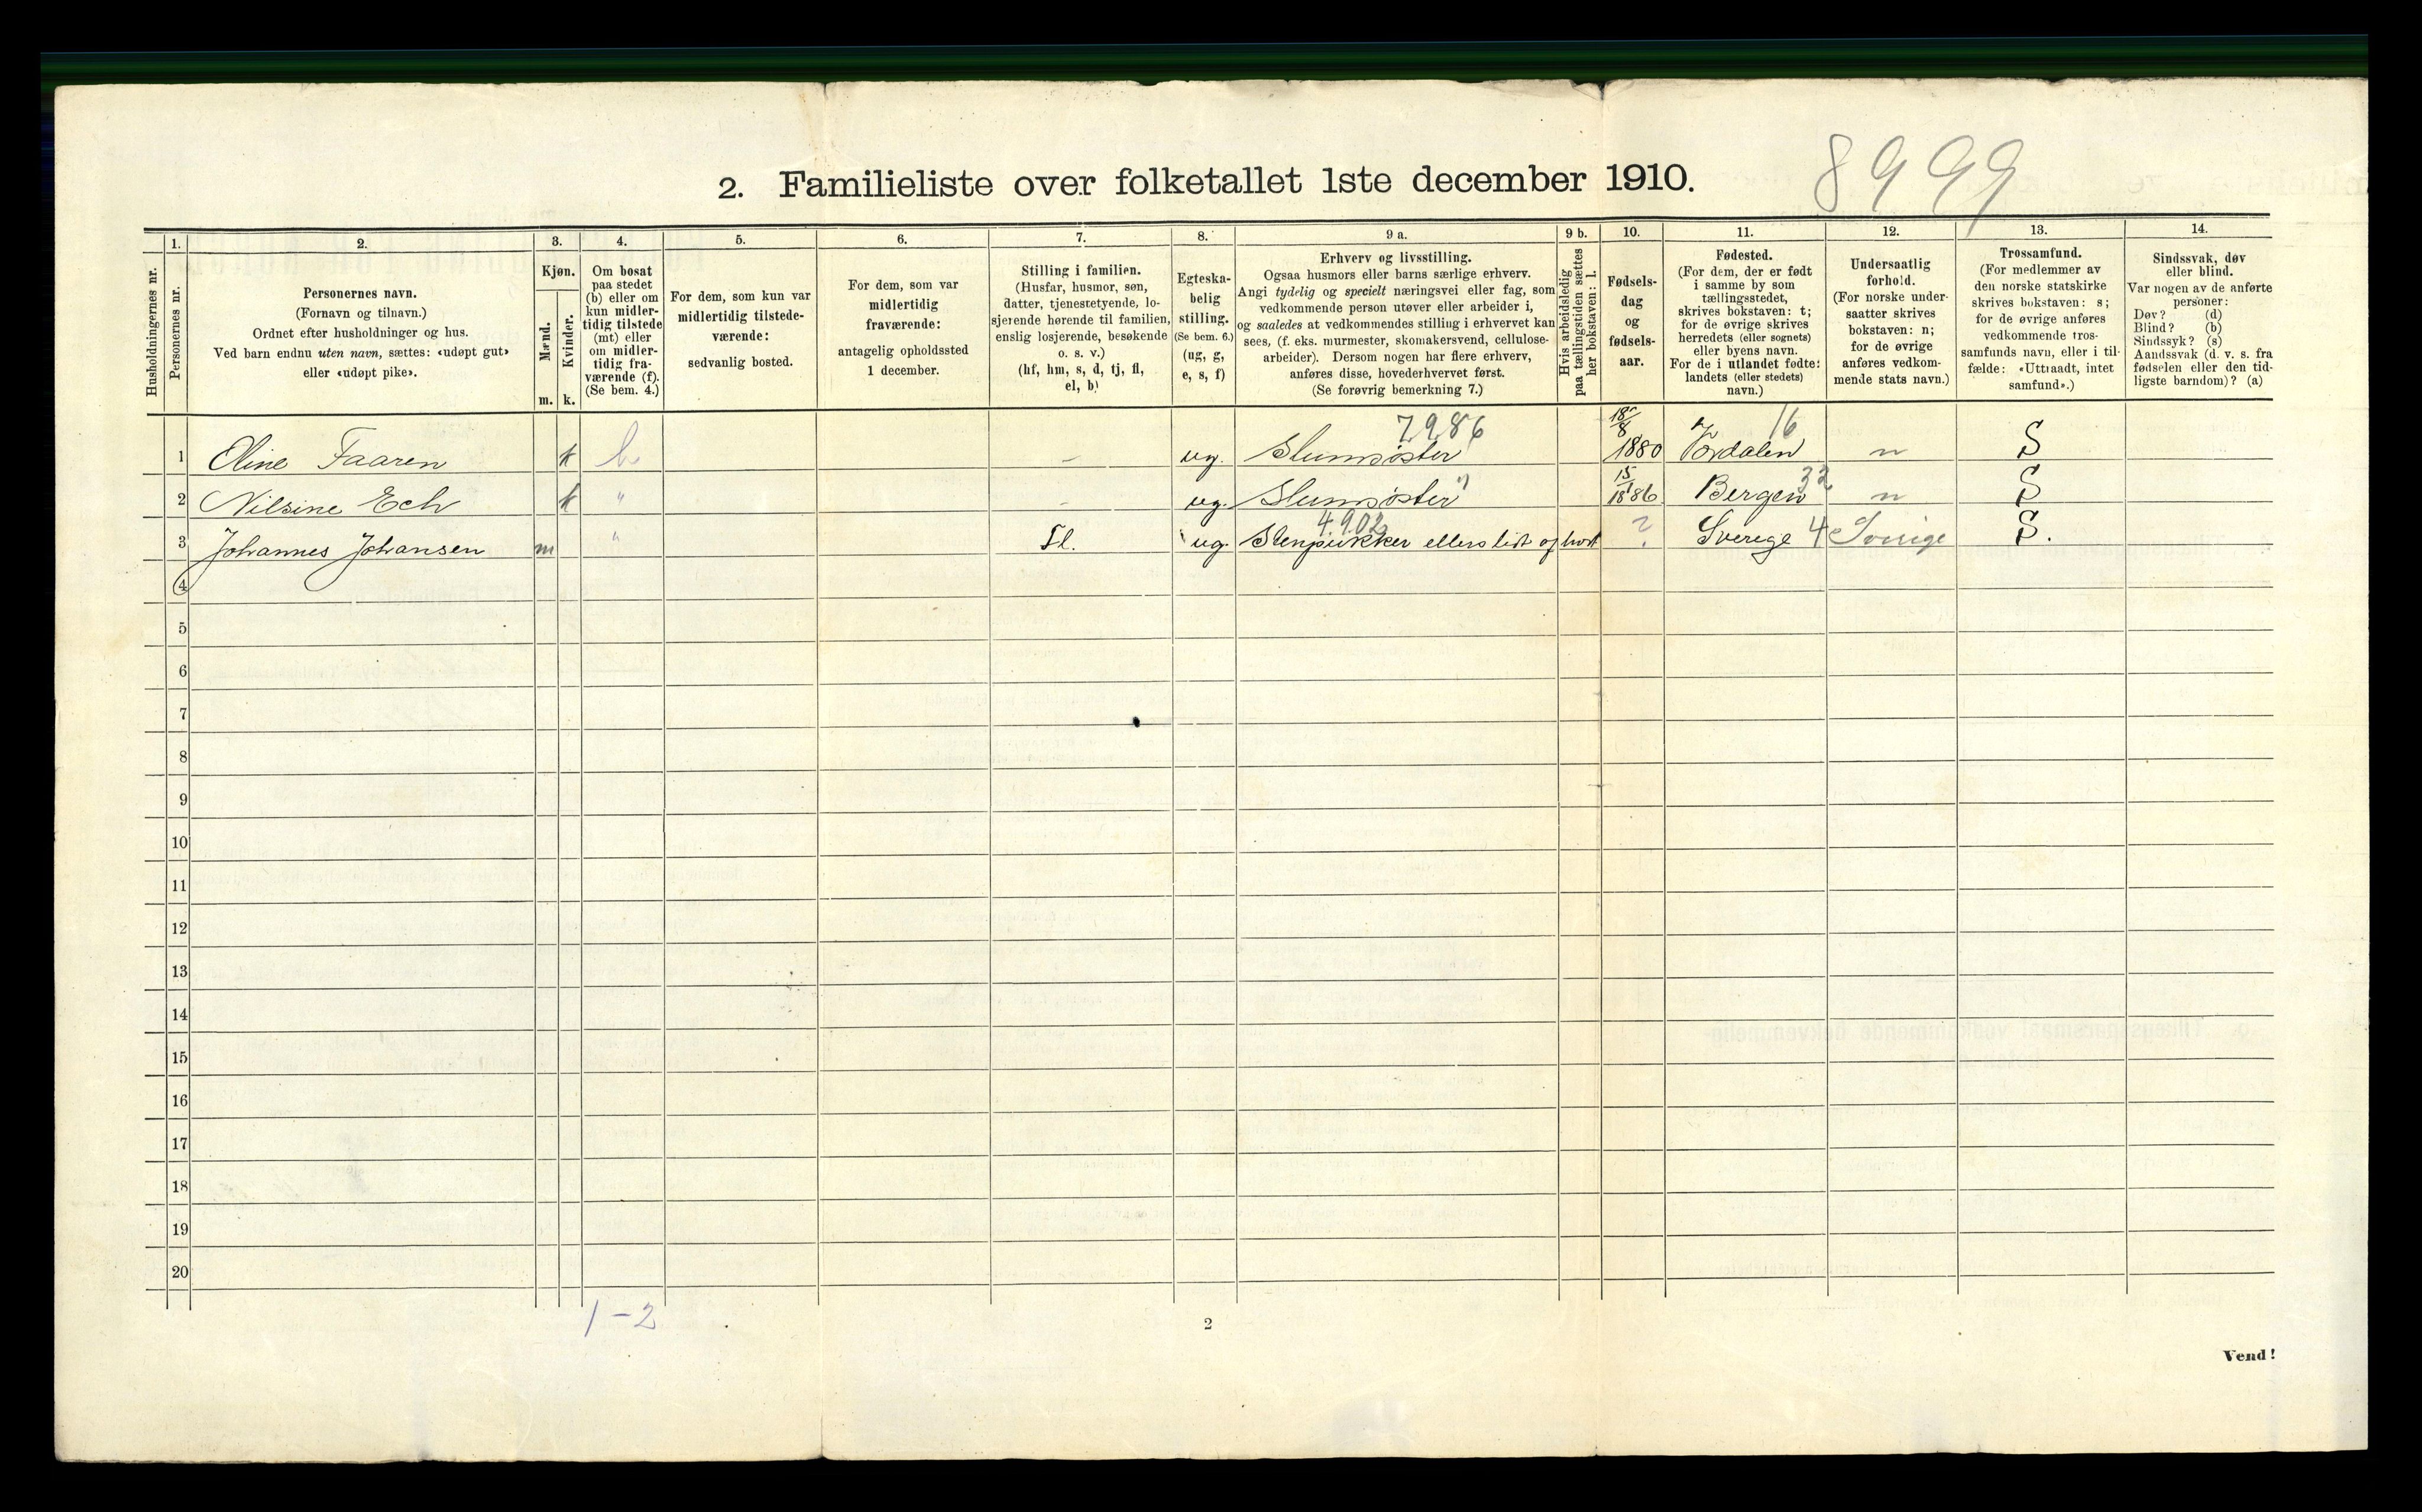 8999
2. Familieliste over folketallet 1ste december 1910.
Husholdningernes nr.
1.
Personernes nr.
2.
Personernes navn.
(Fornavn og tilnavn.)
Ordnet efter husholdninger og hus.
Ved barn endnu uten navn, sættes: «udøpt gut»
eller «udøpt pike».
3.
Kjøn.
Mænd.
Kvinder.
m. k.
4.
Om bosat
paa stedet
(b) eller om
kun midler-
tidig tilstede
(mt) eller
om midler-
tidig fra-
værende (f).
(Se bem. 4.)
5.
For dem, som kun var
midlertidig tilstede-
værende:
sedvanlig bosted.
6.
For dem, som var
midlertidig
fraværende:
antagelig opholdssted
1 december.
7.
Stilling i familien.
(Husfar, husmor, søn,
datter, tjenestetyende, lo-
sjerende hørende til familien,
enslig losjerende, besøkende
o. s. v.)
(hf, hm, s, d, tj, fl,
el, b)
8.
Egteska-
belig
stilling.
(Se bem. 6.)
(ug, g,
e, s, f)
9 a.
Erhverv og livsstilling.
Ogsaa husmors eller barns særlige erhverv.
Angi tydelig og specielt næringsvei eller fag, som
vedkommende person utøver eller arbeider i,
og saaledes at vedkommendes stilling i erhvervet kan
sees, (f. eks. murmester, skomakersvend, cellulose-
arbeider). Dersom nogen har flere erhverv,
anføres disse, hovederhvervet først.
(Se forøvrig bemerkning 7.)
9 b.
Hvis arbeidsledig
paa tællingstiden sættes
her bokstaven: l.
10.
Fødsels-
dag
og
fødsels-
aar.
11.
Fødested.
(For dem, der er født
i samme by som
tællingsstedet,
skrives bokstaven: t;
for de øvrige skrives
herredets (eller sognets)
eller byens navn.
For de i utlandet fødte:
landets (eller stedets)
navn.)
12.
Undersaatlig
forhold.
(For norske under-
saatter skrives
bokstaven: n;
for de øvrige
anføres vedkom-
mende stats navn.)
13.
Trossamfund.
(For medlemmer av
den norske statskirke
skrives bokstaven: s;
for de øvrige anføres
vedkommende tros-
samfunds navn, eller i til-
fælde: «Uttraadt, intet
samfund».)
14.
Sindssvak, døv
eller blind.
Var nogen av de anførte
personer:
Døv? (d)
Blind? (b)
Sindssyk? (s)
Aandssvak (d. v. s. fra
fødselen eller den tid-
ligste barndom)? (a)
7986 18/8 16
1 Eline Faaren k b – ug. Slumsøster 1880 Vordalen n S
15/1 32
2 Nilsine Ech k " – ug. Slumsøster ") 1886 Bergen n S
4.902
3 Johannes Johansen m " Fl. ug. Stenpukker ellers lidt af hvert ? Sverege 4 Sverige S.
4
5
6
7
8
9
10
11
12
13
14
15
16
17
18
19
20
1–2
2
Vend!